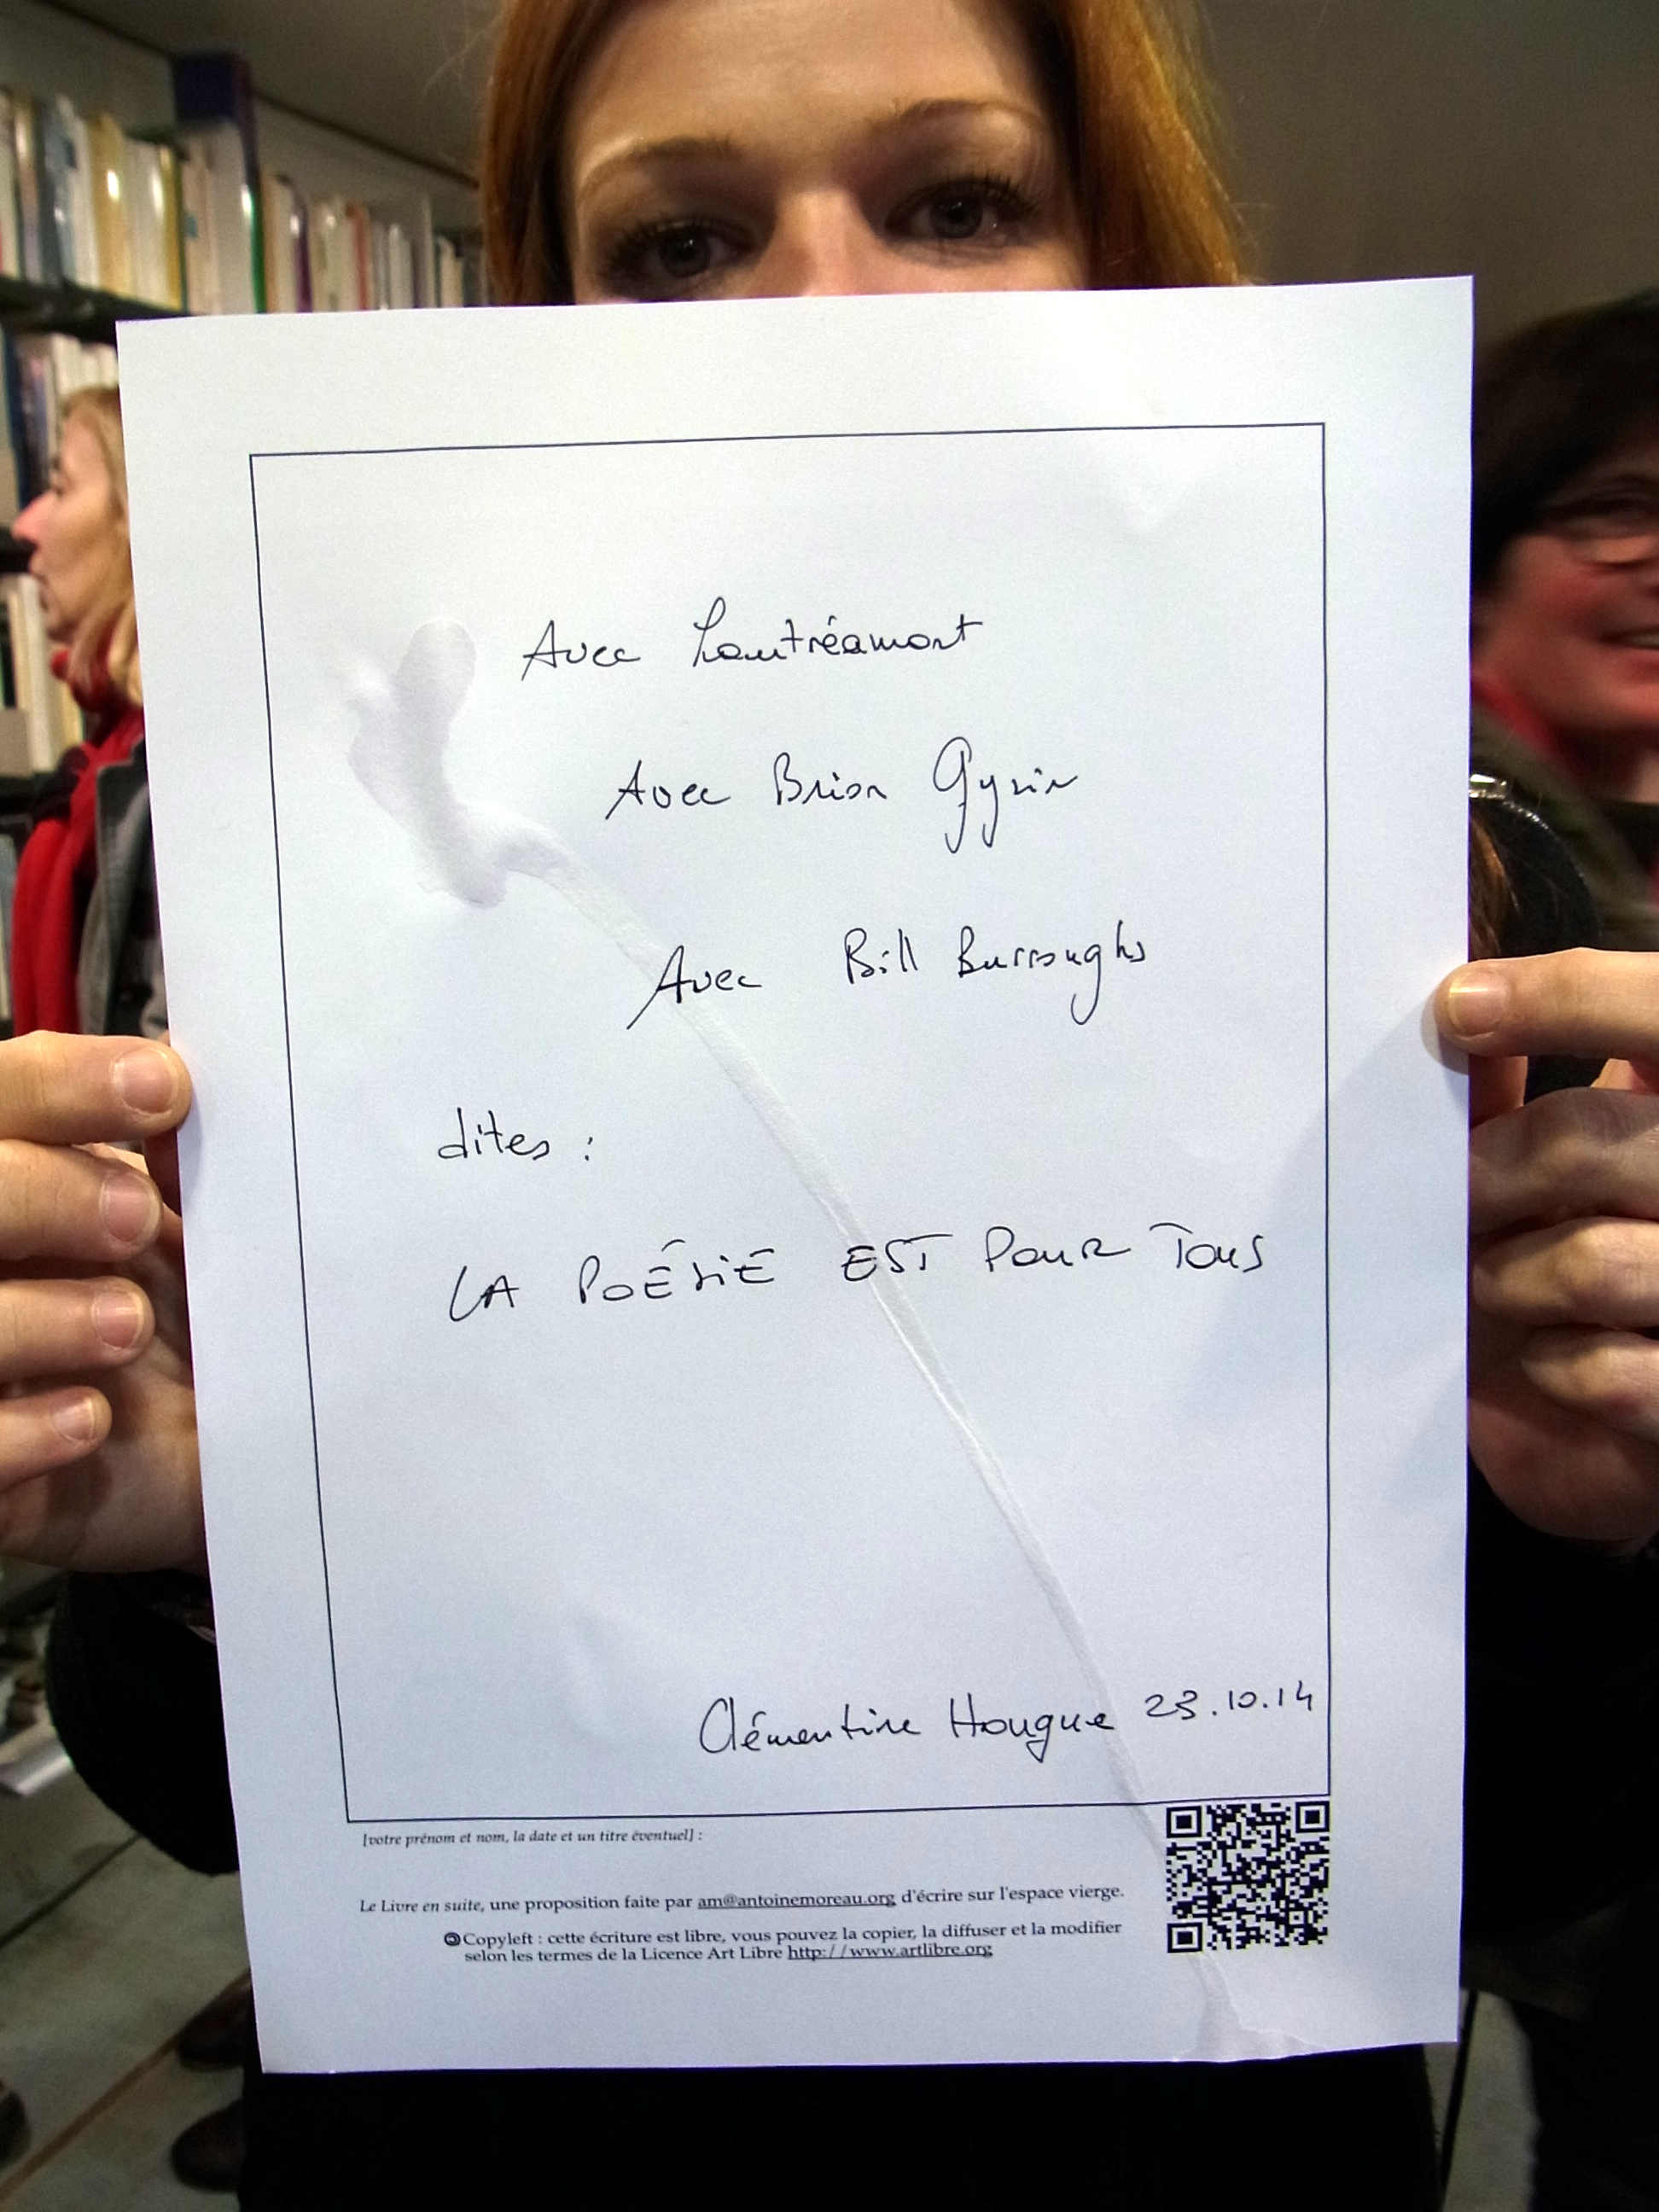 Avec Lautréamont
Avec Brion Gysin
Avec Bill Burroughs
dites :
LA POÉSIE EST POUR TOUS
Clémentine Hougue 23.10.14
[votre prénom et nom, la date et un titre éventuel] :
Le Livre en suite, une proposition faite par am@antoinemoreau.org d'écrire sur l'espace vierge.
Copyleft : cette écriture est libre, vous pouvez la copier, la diffuser et la modifier
selon les termes de la Licence Art Libre http://www.artlibre.org